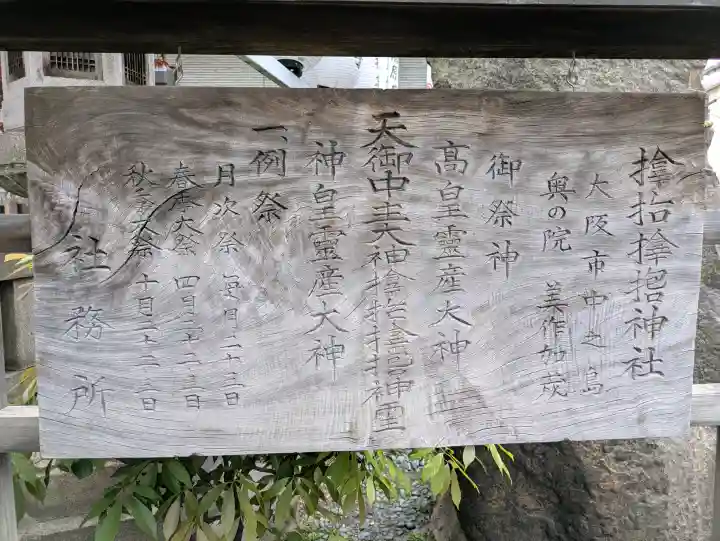 𪮷抬𪮷𪮇神社
大阪市中之島
奥の院 美作加茂
御祭神
高皇靈産大神
天御中主大神𪮷抬𪮷𪮇神
神皇靈産大神
一、例祭
月次祭 毎月二十三日
春季大祭 四月二十二・三日
秋季大祭 十月二十二・三日
社務所